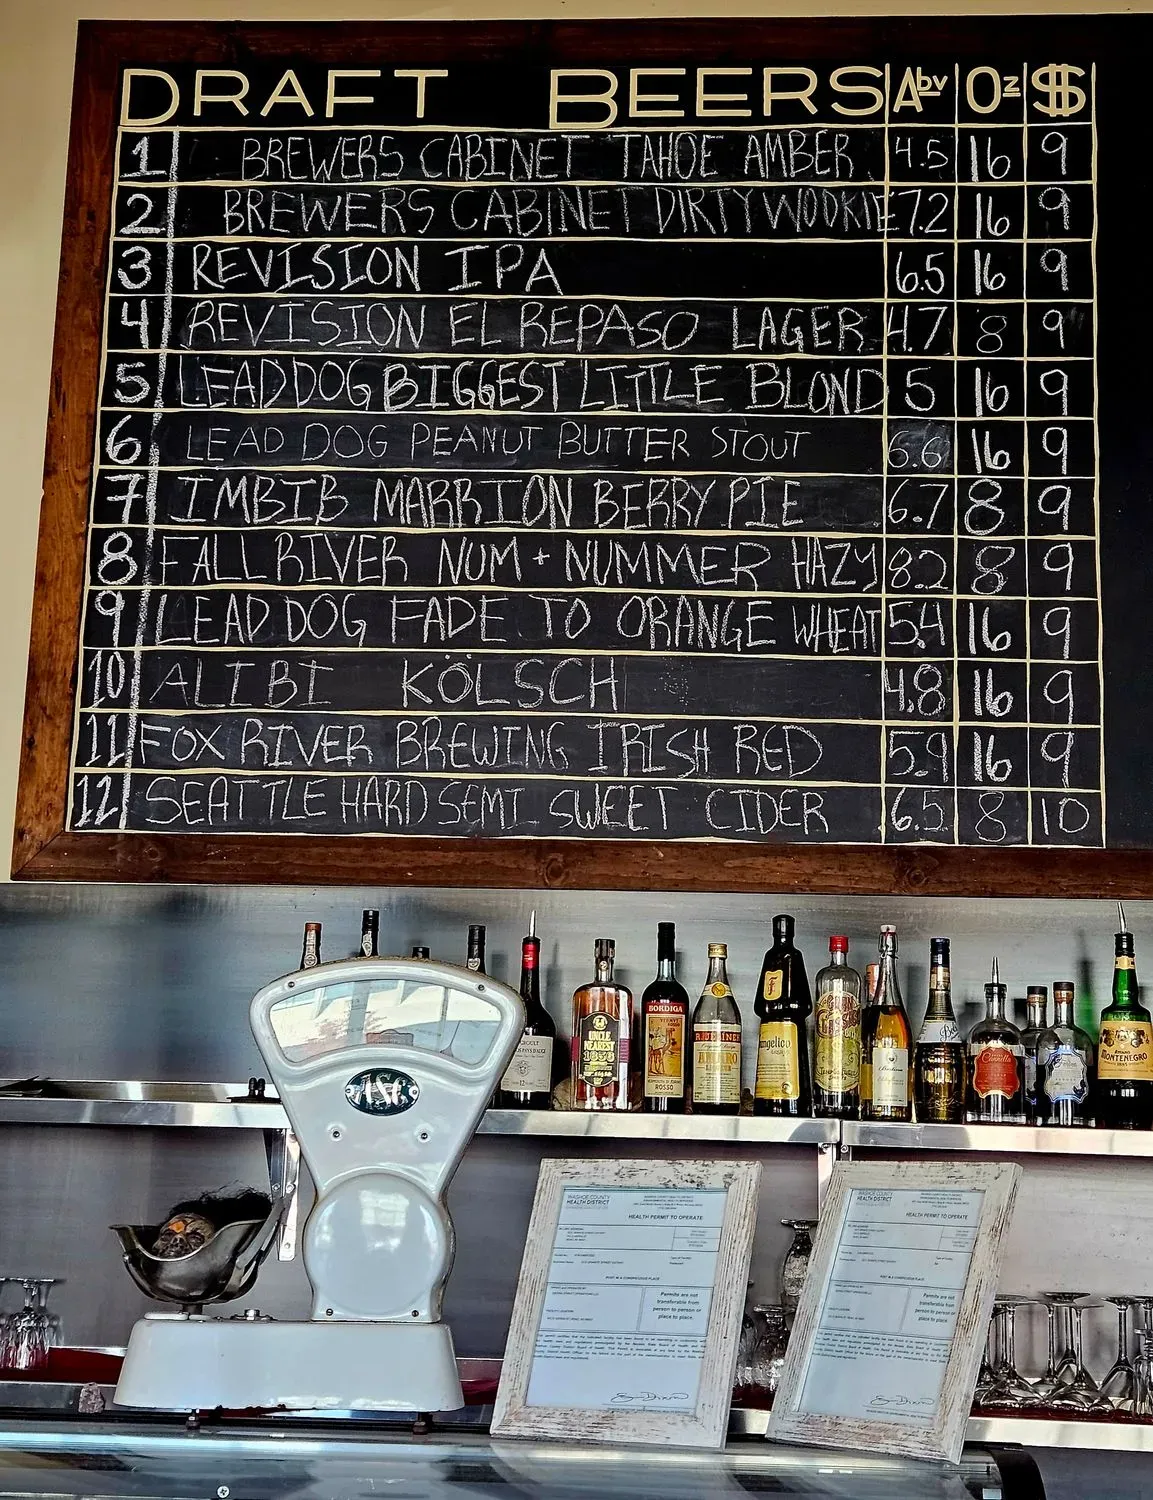 DRAFT BEERS Abv Oz $
1 BREWERS CABINET TAHOE AMBER 4.5 16 9
2 BREWERS CABINET DIRTY WOOKIE 7.2 16 9
3 REVISION IPA 6.5 16 9
4 REVISION EL REPASO LAGER 4.7 8 9
5 LEAD DOG BIGGEST LITTLE BLOND 5 16 9
6 LEAD DOG PEANUT BUTTER STOUT 6.6 16 9
7 IMBIB MARRION BERRY PIE 6.7 8 9
8 FALL RIVER NUM + NUMMER HAZY 8.2 8 9
9 LEAD DOG FADE TO ORANGE WHEAT 5.4 16 9
10 ALIBI KÖLSCH 4.8 16 9
11 FOX RIVER BREWING IRISH RED 5.9 16 9
12 SEATTLE HARD SEMI SWEET CIDER 6.5 8 10
UNCLE NEAREST
1856
BORDIGA
ROSSO
AMARO
MONTENEGRO
WASHOE COUNTY
HEALTH DISTRICT
HEALTH PERMIT TO OPERATE
POST IN A CONSPICUOUS PLACE
Permits are not
transferable from
person to person or
place to place.
WASHOE COUNTY
HEALTH DISTRICT
HEALTH PERMIT TO OPERATE
POST IN A CONSPICUOUS PLACE
Permits are not
transferable from
person to person or
place to place.